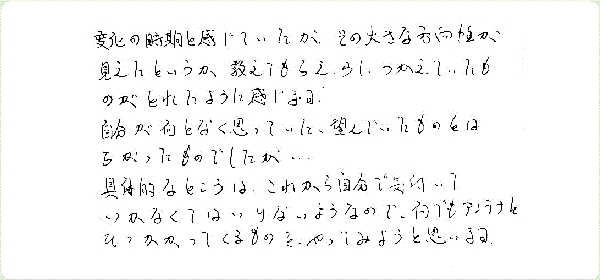 変化の時期と感じていたが、その大きな方向性が
見えたというか、教えてもらえ、少し、つかえていたも
のがとれたように感じます。
自分が何となく思っていた、望んでいたものとは
ちがったものでしたが…
具体的なところは、これから自分で気付いて
いかなくてはいけないようなので、何でもアンテナに
ひっかかってくるものを、やってみようと思います。